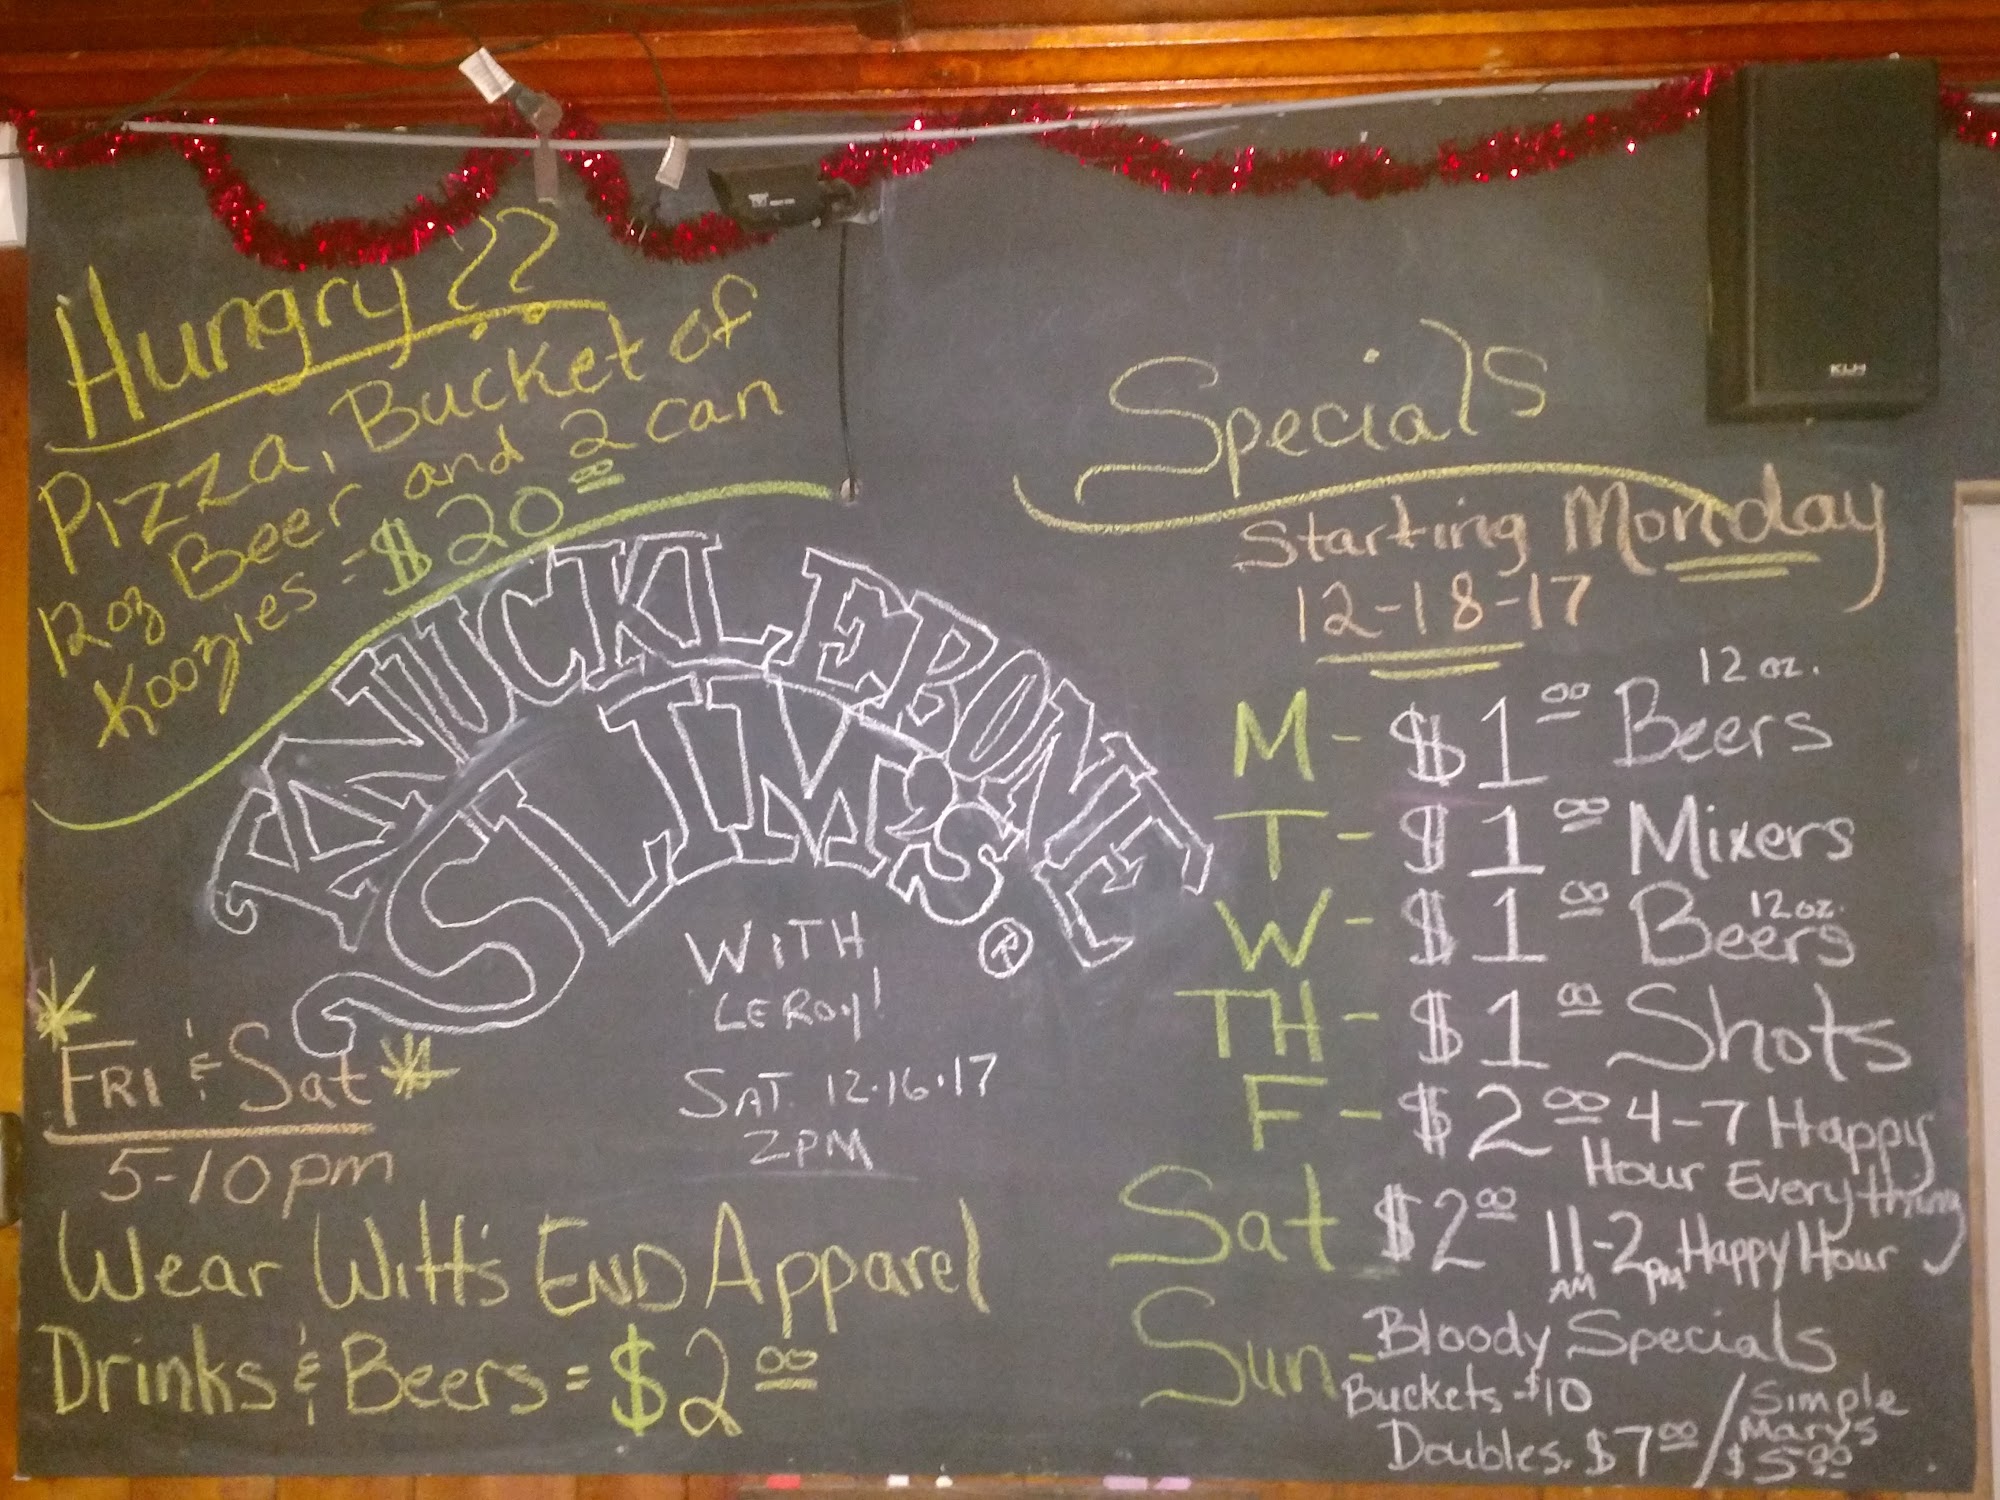 Hungry??
Pizza, Bucket of
12oz Beer and 2 can
Koozies = $20.00
KNUCKLEBONE
SLIM'S ®
WITH
LEROY!
SAT. 12.16.17
2PM
*FRI & Sat*
5-10pm
Wear Witt's END Apparel
Drinks & Beers = $2.00
Specials
Starting Monday
12-18-17
M - $1.00 Beers 12 oz.
T - $1.00 Mixers
W - $1.00 Beers 12 oz.
TH - $1.00 Shots
F - $2.00 4-7 Happy
Hour Everything
Sat $2.00 11AM-2PM Happy Hour
Sun - Bloody Specials
Buckets - $10
Doubles. $7.00 / Simple
Marys
$5.00
KLH